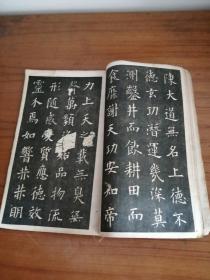 陳大道無名上德不
德玄功潛運幾深莫
測鑿井而飲耕田而
食靡謝天功安知帝
力上天之載無臭無
萬類始品物流
形隨感變質應德效
靈介焉如響赫赫明